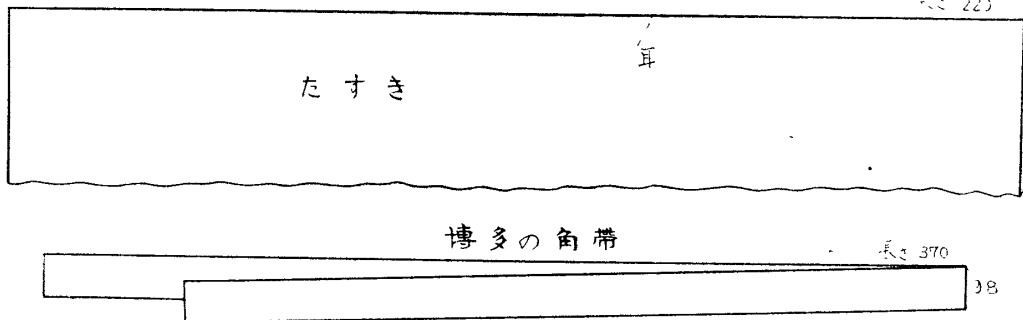 長さ 225
耳
たすき
博多の角帯
長さ 370